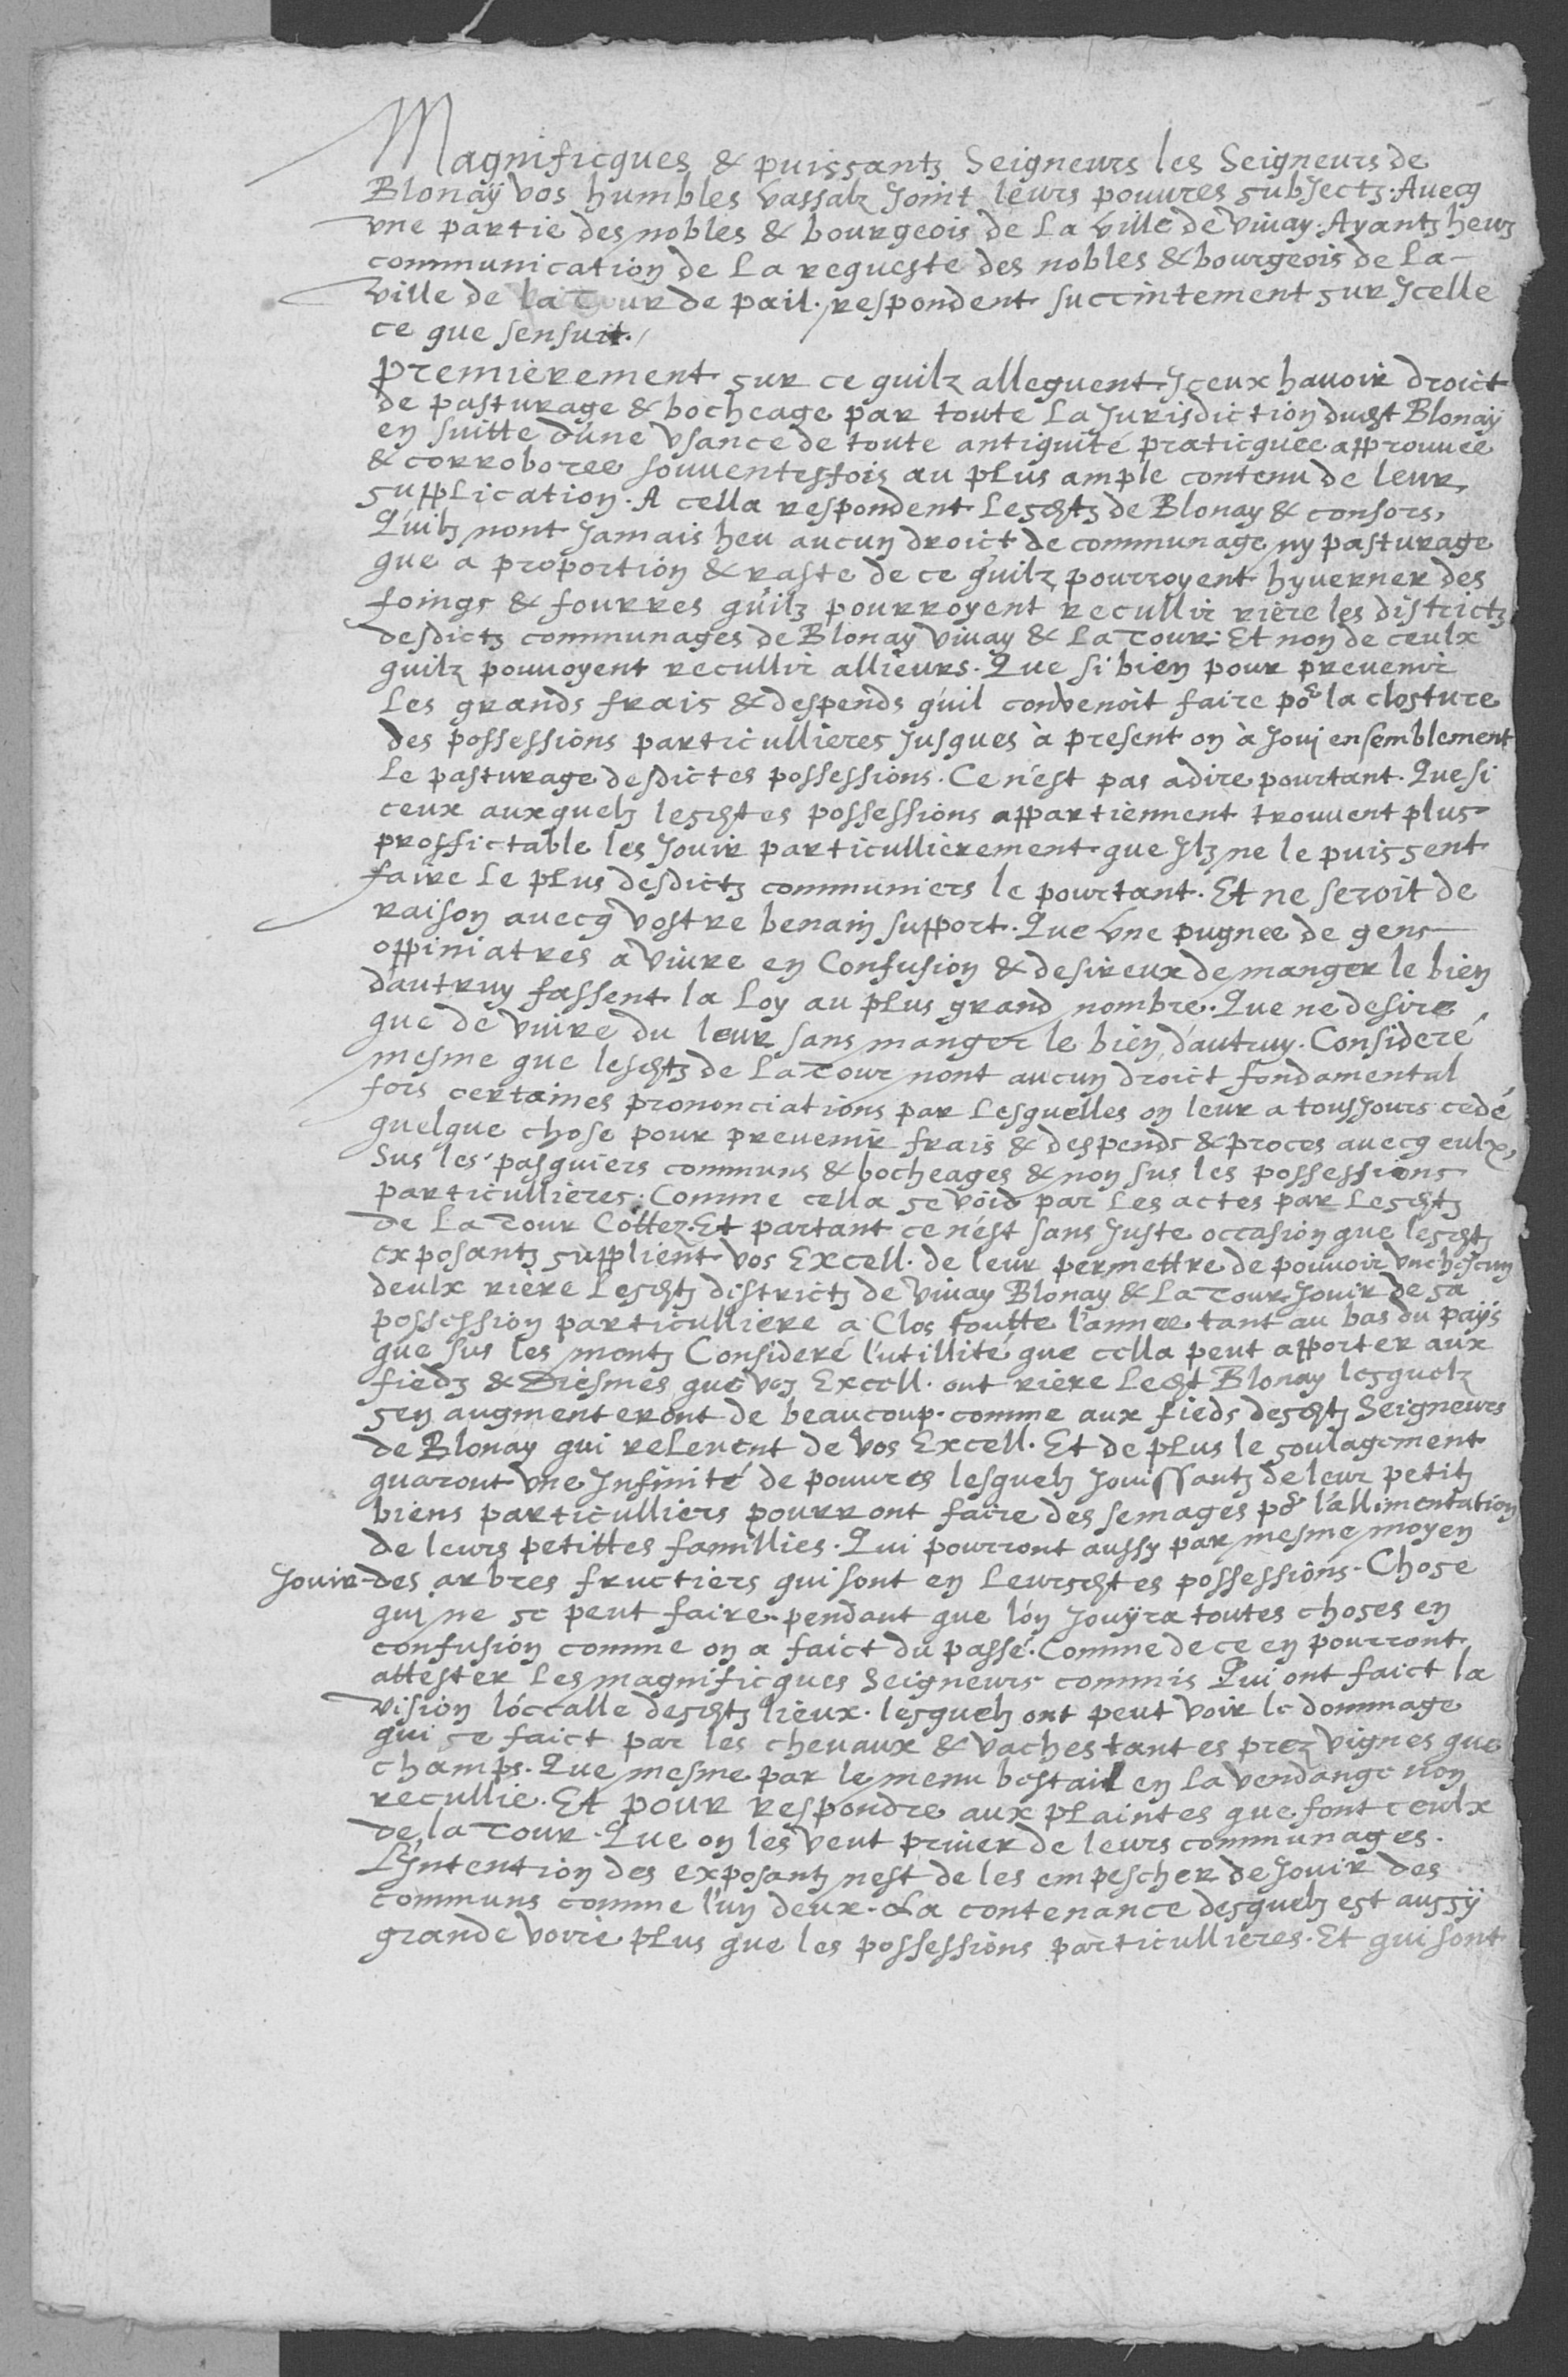 Magnificques & puissantz Seigneurs les Seigneurs de
Blonaÿ vos humbles vassalz Joint leurs pouures subJectz. Auecq
vne partie des nobles & bourgeois de La ville de viuay. Ayantz heuz
communication de La requeste des nobles & bourgeois de La
ville de La Tour de pail. respondent succintement sur Jcelle
ce que sensuit.
Premierement sur ce quilz alleguent Jceux hauoir droict
de pasturage & bocheage par toute La Jurisdiction dudt Blonaÿ
en suitte d'une vsance de toute antiquité practicquee approuuée
& corroboree souuentesfois au plus ample contenu de leur
supplication. A cella respondent Lesdtz de Blonay & consors,
Qu'ilz nont Jamais heu aucun droict de communage ny pasturage
que a proportion & raste de ce quilz pourroyent hyuerner des
foings & fourres qu'ilz pourroyent recullir riere les districtz
desdictz communages de Blonay viuay & La Tour. Et non de ceulx
quilz pouuoyent recullir allieurs. Que si bien pour preuenir
Les grands frais & despends qu'il convenoit faire por la closture
des possessions particullieres Jusques à present on à Joui ensemblement
Le pasturage desdictes possessions. Ce n'est pas adire pourtant. Que si
ceux auxquelz lesdtes possessions appartiennent trouuent plus
proffictable les Jouir particullierement que Jlz ne le puissent
faire Le plus desdictz communiers le pourtant. Et ne seroit de
raison auecq vostre benain support. Que vne pugnee de gens
oppiniatres à viure en Confusion & desireux de manger le bien
d'autruy fassent la Loy au plus grand nombre. Que ne desire
que de viure du leur sans manger le bien d'autruy. Consideré
mesme que lesdtz de La Tour nont aucun droict fondamental
fors certaines prononciations par Lesquelles on leur a tousJours cedé
quelque chose pour preuenir frais & despends & proces auecq eulx,
Sus les pasquiers communs & bocheages & non sus les possessions
particullieres. Comme cella se void par Les actes par Lesdtz
de La Tour Cottez. Et partant ce n'est sans Juste occasion que lesdtz
exposantz supplient vos Excell. de leur permettre de pouuoir vnchescun
deulx riere Lesdtz districtz de viuay Blonay & La Tour Jouir de sa
possession particulliere a Clos toutte l'annee tant au bas du paÿs
que sus les montz Consideré l'utillité que cella peut apporter aux
fiedz & Diesmes que voz Excell. ont riere Ledt Blonay lesquelz
sen augmenteront de beaucoup. comme aux fieds desdtz Seigneurs
de Blonay qui releuent de vos Excell. Et de plus le soulagement
quaront vne Infinité de pouures lesquelz Jouissantz de leur petitz
biens particulliers pourront faire des semages por l'allimentation
de leurs petittes famillies. Qui pourront aussy par mesme moyen
Jouir des arbres fructiers qui sont en Leursdtes possessions. Chose
qui ne se peut faire pendant que lón Jouÿra toutes choses en
confusion comme on a faict du passé. Comme de ce en pourront
attester Les magnificques Seigneurs commis Qui ont faict la
vision lóccalle desdtz lieux. lesquelz ont peut voir le dommage
qui se faict par les cheuaux & vaches tant es prez vignes que
champs. Que mesme par le menu bestail en La vendange non
recullie. Et pour respondre aux plaintes que font ceulx
de la Tour. Que on les veut priuer de leurs communages.
L'Intention des exposantz nest de les empescher de Jouir des
communs comme l'un deux. La contenance desquelz est aussÿ
grande voire plus que les possessions particullieres. Et qui sont